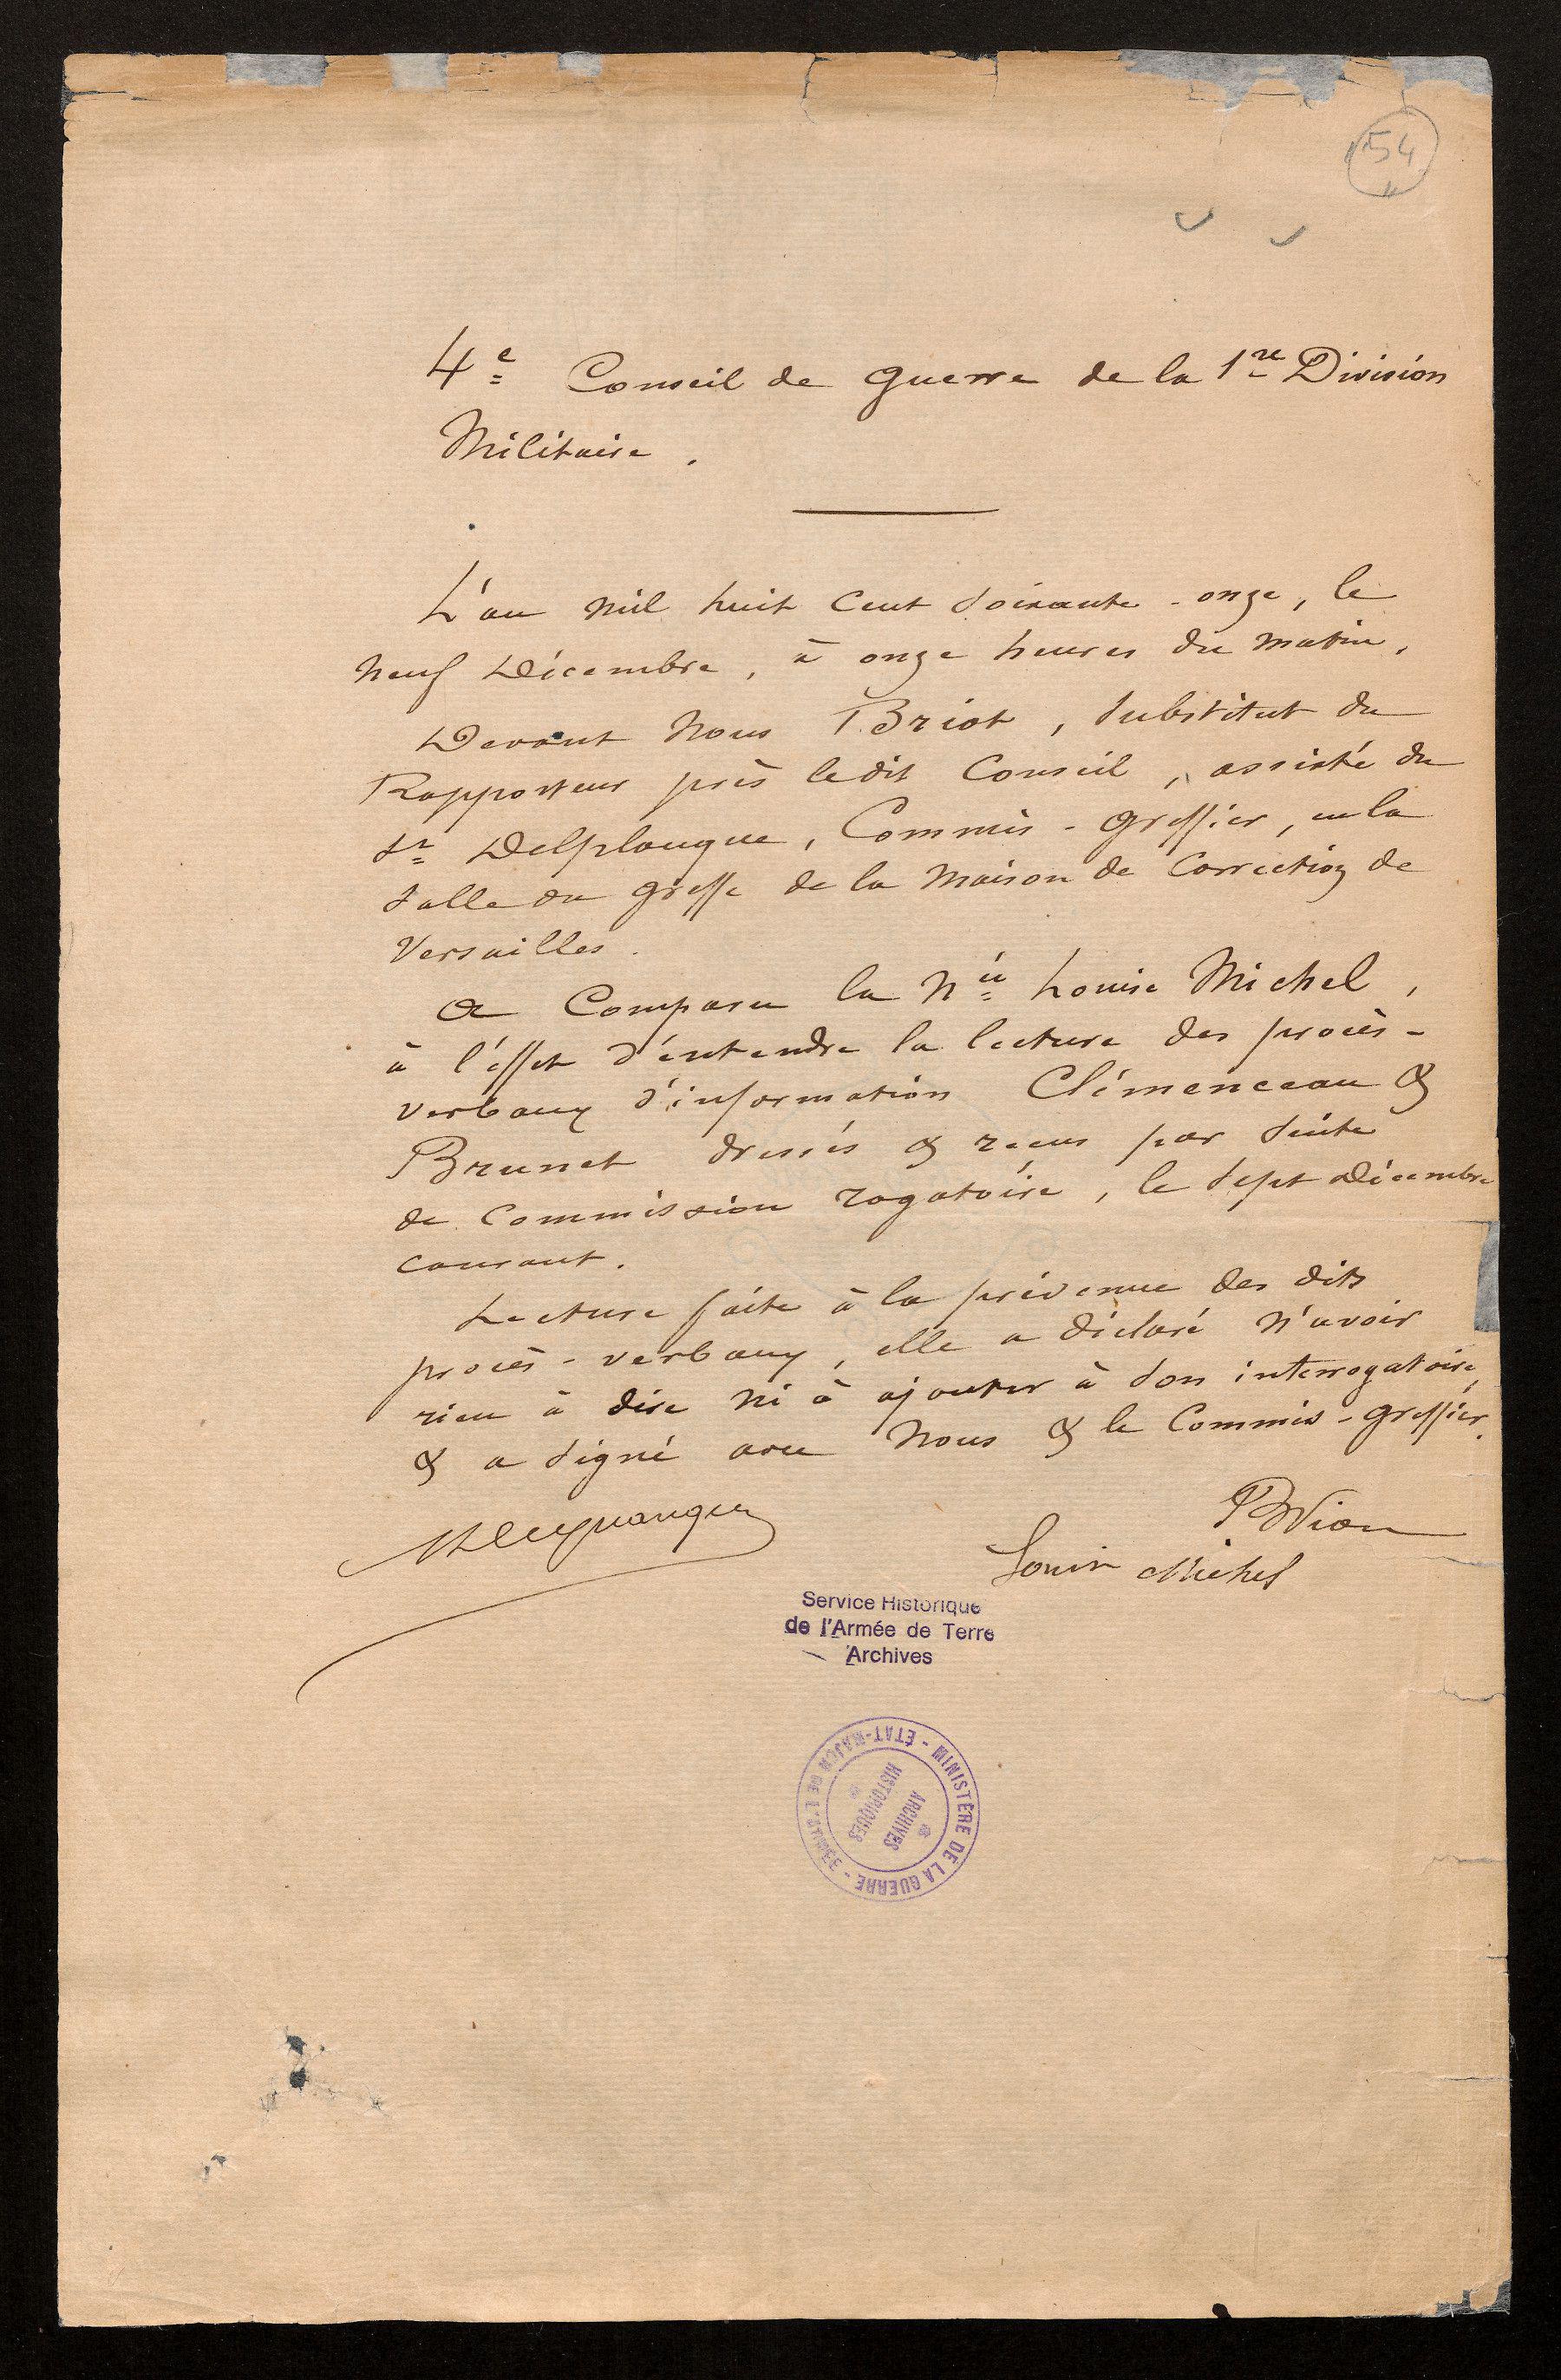 54
4e Conseil de guerre de la 1re Division
Militaire.
L'an mil huit cent soixante-onze, le
neuf Décembre, à onze heures du matin,
Devant Nous Briot, Substitut du
Rapporteur près ledit Conseil, assisté du
Sr Delplanque, Commis-greffier, en la
salle du greffe de la Maison de Correction de
Versailles.
A Comparu la Née Louise Michel,
à l'effet d'entendre la lecture des procès-
verbaux d'information Clémenceau &
Brunet dressés & reçus par suite
de Commission rogatoire, le sept Décembre
courant.
Lecture faite à la prévenue des dits
procès-verbaux, elle a déclaré n'avoir
rien à dire ni à ajouter à son interrogatoire,
& a signé avec Nous & le Commis-greffier.
Louise Michel
Service Historique
de l'Armée de Terre
Archives
MINISTÈRE DE LA GUERRE - ÉTAT-MAJOR DE L'ARMÉE -
ARCHIVES
HISTORIQUES